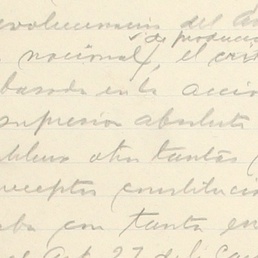 evolucionario del
de producció
nacional, el crit
basada en la acció
supresion absoluta
otro tantas
preceptos constitucio
aba con tanta en
el Art. 27 de la Con